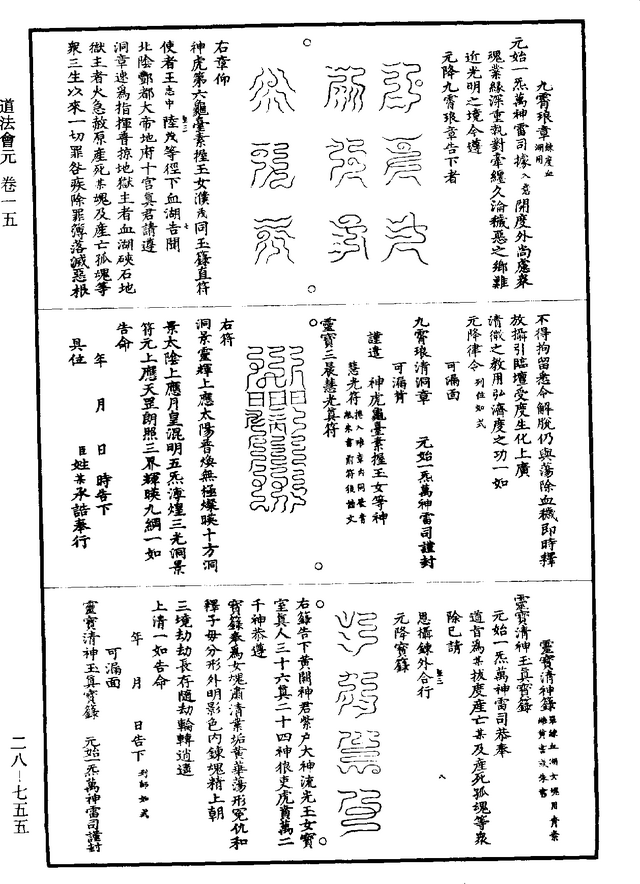 道法會元 卷一五
二八—七五五
九霄琅章鍊度血湖用
元始一炁萬神雷司據入意開度外尚慮衆
魂業緣深重執對牽纏久淪穢惡之鄉難
近光明之境今遵
元降九霄琅章告下者
右章仰
神虎第六龜臺素握玉女濮茂同玉籙直符
使者王志中陸茂等徑下血湖告聞
北陰酆都大帝地府十宫真君請遵
洞章速為指揮普掠地獄主者血湖硤石地
獄主者火急赦原産死某魂及産亡孤魂等
衆三生以來一切罪咎疾除罪簿落滅惡根
不得拘留悉令解脫仍與蕩除血穢即時釋
放攝引臨壇受度生化上廣
清微之教用弘濟度之功一如
元降律令列位如式
可漏面
九霄琅清洞章 元始一炁萬神雷司謹封
可漏背
謹遣 神虎龜臺素握玉女等神
慧光符
靈寶三晨慧光真符
右符
洞景靈輝上應太陽普煥無極燦暎十方洞
景太陰上應月皇混明五炁漳煌三光洞景
符元上應天罡朗照三界輝暎九綱一如
告命
年 月 日 時告下
具位 臣姓某承誥奉行
靈寶清神籙
靈寶清神玉真寶籙
元始一炁萬神雷司恭奉
道旨為某拔度産亡某及産死孤魂等衆
除已請
思攝鍊外合行
元降寶籙
右籙告下黄闕神君紫户大神流光玉女寶
室真人三十六真二十四神狼吏虎賁萬二
千神恭遵
寶籙奉為女魂肅清業垢黄華蕩形冤仇和
釋子母分形外明影色内鍊魂精上朝
三境劫劫長存隨劫輪轉逍遥
上清一如告命
年 月 日告下列銜如式
可漏面
靈寶清神玉真寶籙 元始一炁萬神雷司謹封